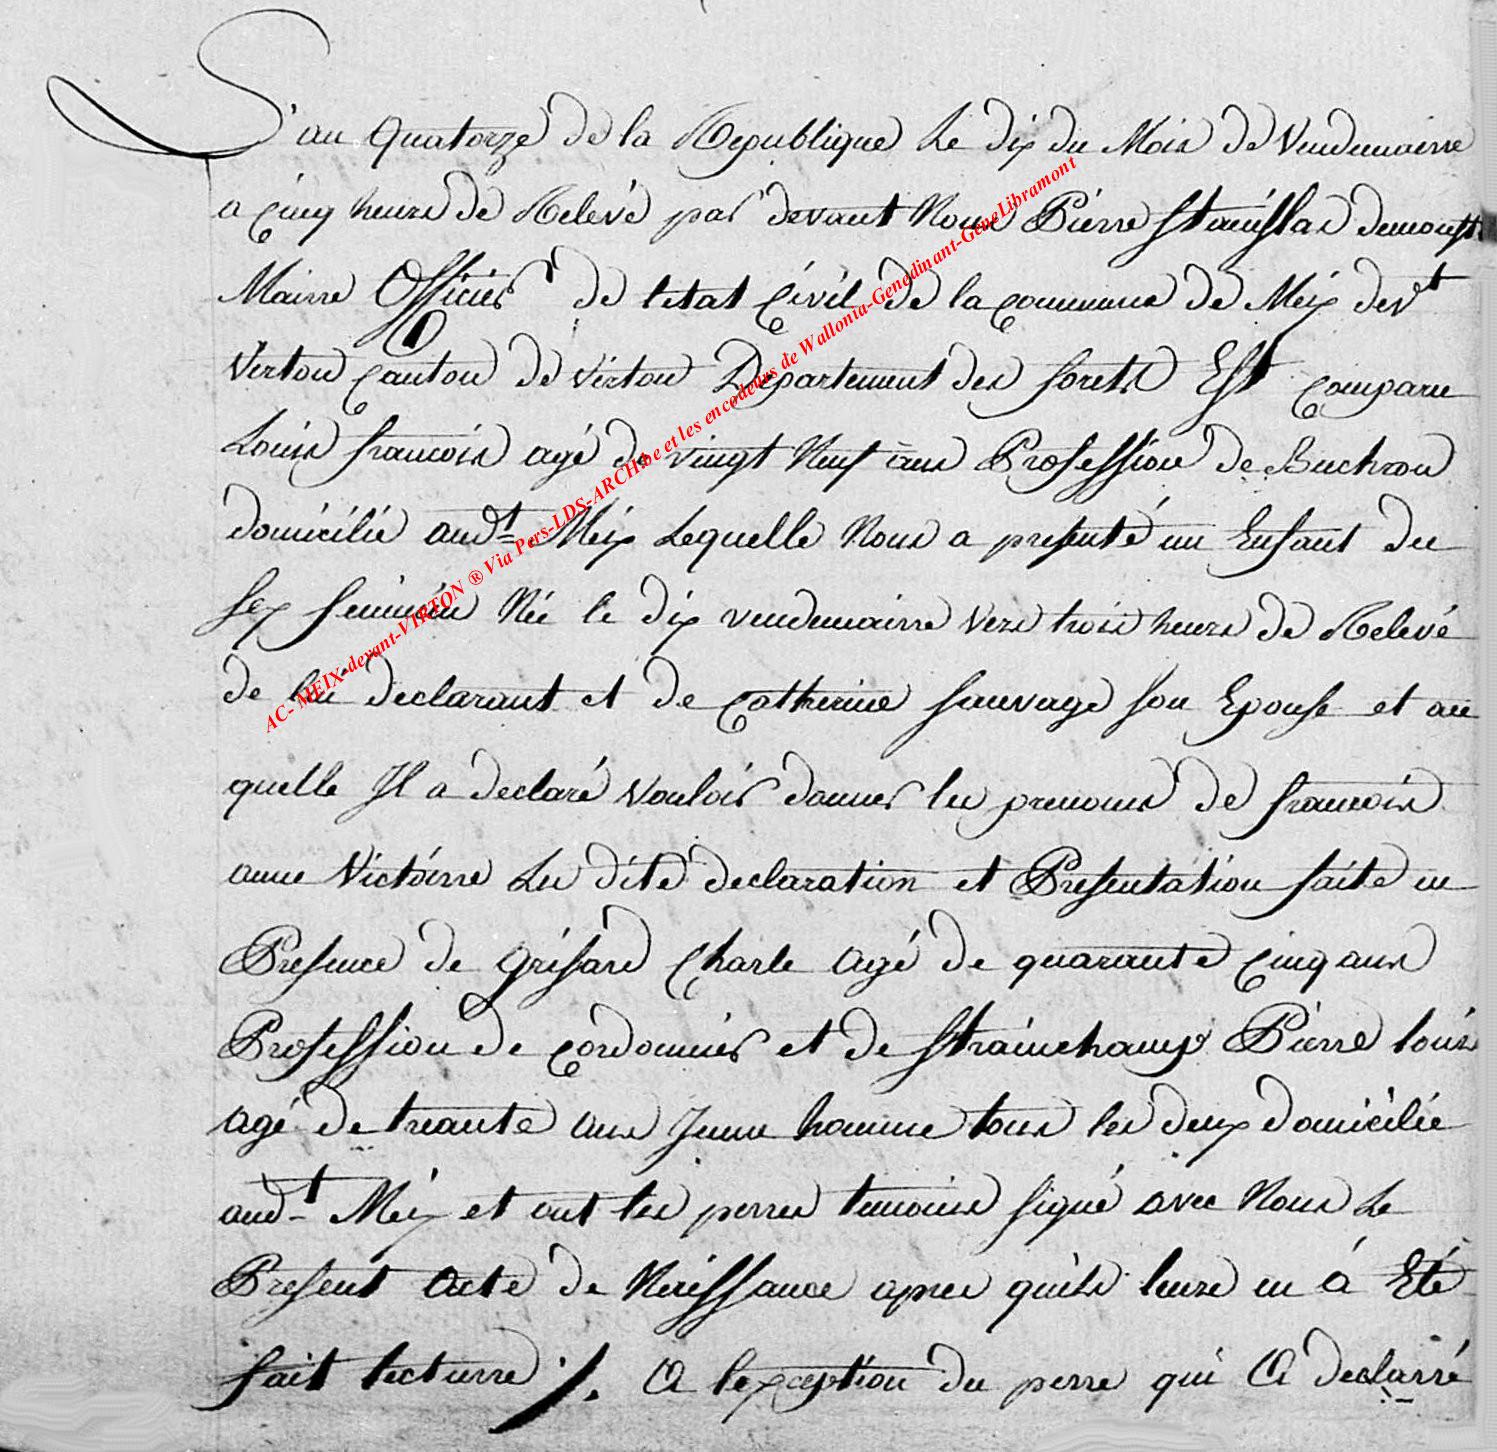 L'an quatorze de la Republique Le dix du Mois de Vendemairre
a cinq heures de Relevé par devant Nous Pierre Stanislas demoust
Mairre Officier de letat Civil de la commune de Meix devt
Virton Canton de Virton Departement des forets Est comparu
Louis francois agé de vingt Neuf ans Profession de Buchron
domicilié audt Meix Lequelle Nous a presenté un Enfant du
sex feminin Née le dix vendemairre vers trois heures de Relevé
de lui declarant et de Catherine Sauvage son Epouse et au
quelle Il a declaré vouloir donner les prenoms de francois
anne Victoirre Les dite declaration et Presentation faite en
Presence de grisard Charle agé de quarante cinq ans
Profession de cordonnier et de strainchamp Pierre louis
agé de treante ans Jeune homme tous les deux domicilié
audt Meix et ont les perres temoins signé avec Nous Le
Present Acte de Naissance apres quils leure en á Eté
fait lecturre ./. A lexception du perre qui A declarré
AC- MEIX-devant-VIRTON ® Via Pers-LDS-ARCH.be et les encodeurs de Wallonia-Genedinant-GeneLibramont